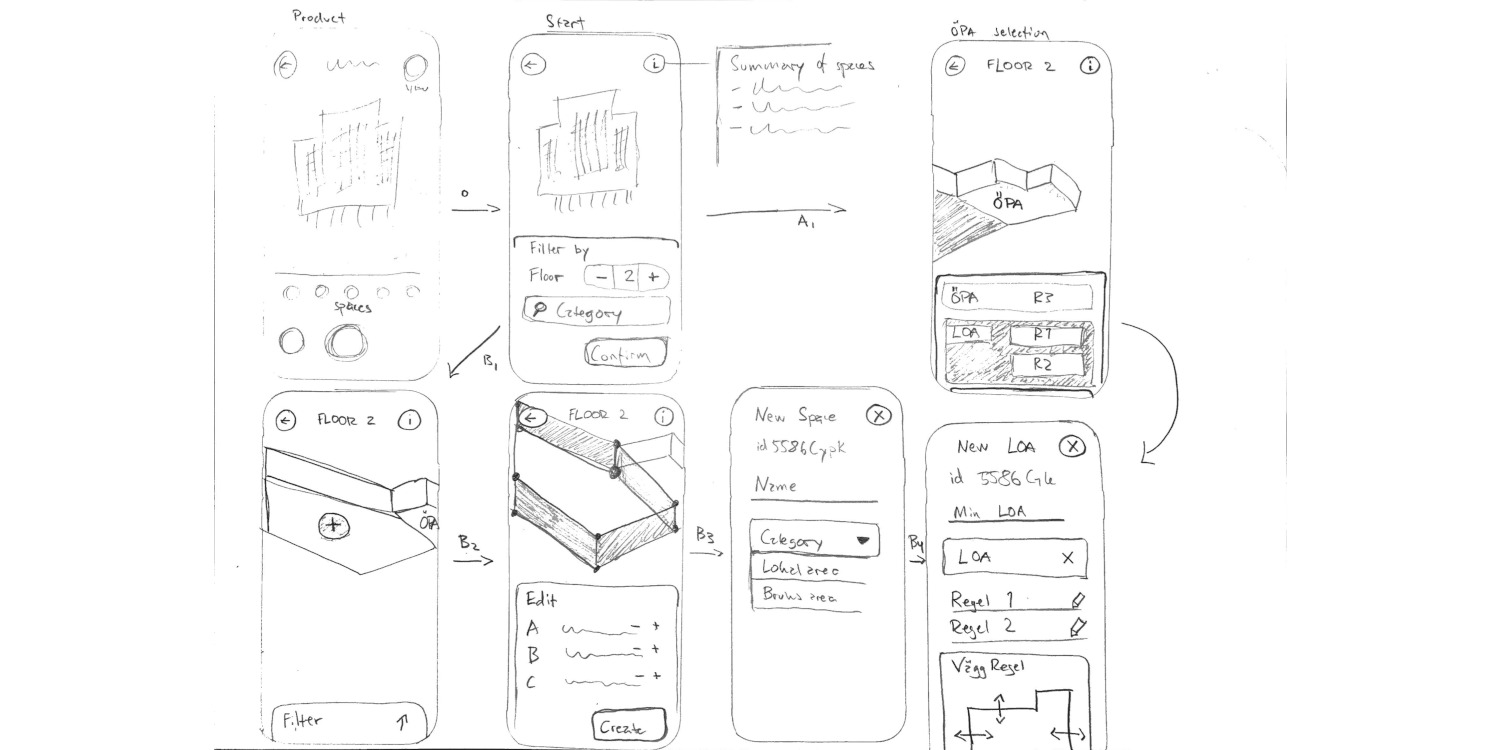 Product
spaces
O
Start
i
Summary of spaces
Filter by
Floor - 2 +
Category
Confirm
A1
ÖPA selection
FLOOR 2 i
ÖPA
ÖPA R3
LOA R1
R2
B1
FLOOR 2 i
+
ÖPA
Filter
B2
FLOOR 2 i
Edit
A - +
B - +
C - +
Create
B3
New Space X
Name
Category
Lokal area
Bruks area
B4
New LOA X
Min LOA
LOA X
Regel 1
Regel 2
Vägg Regel